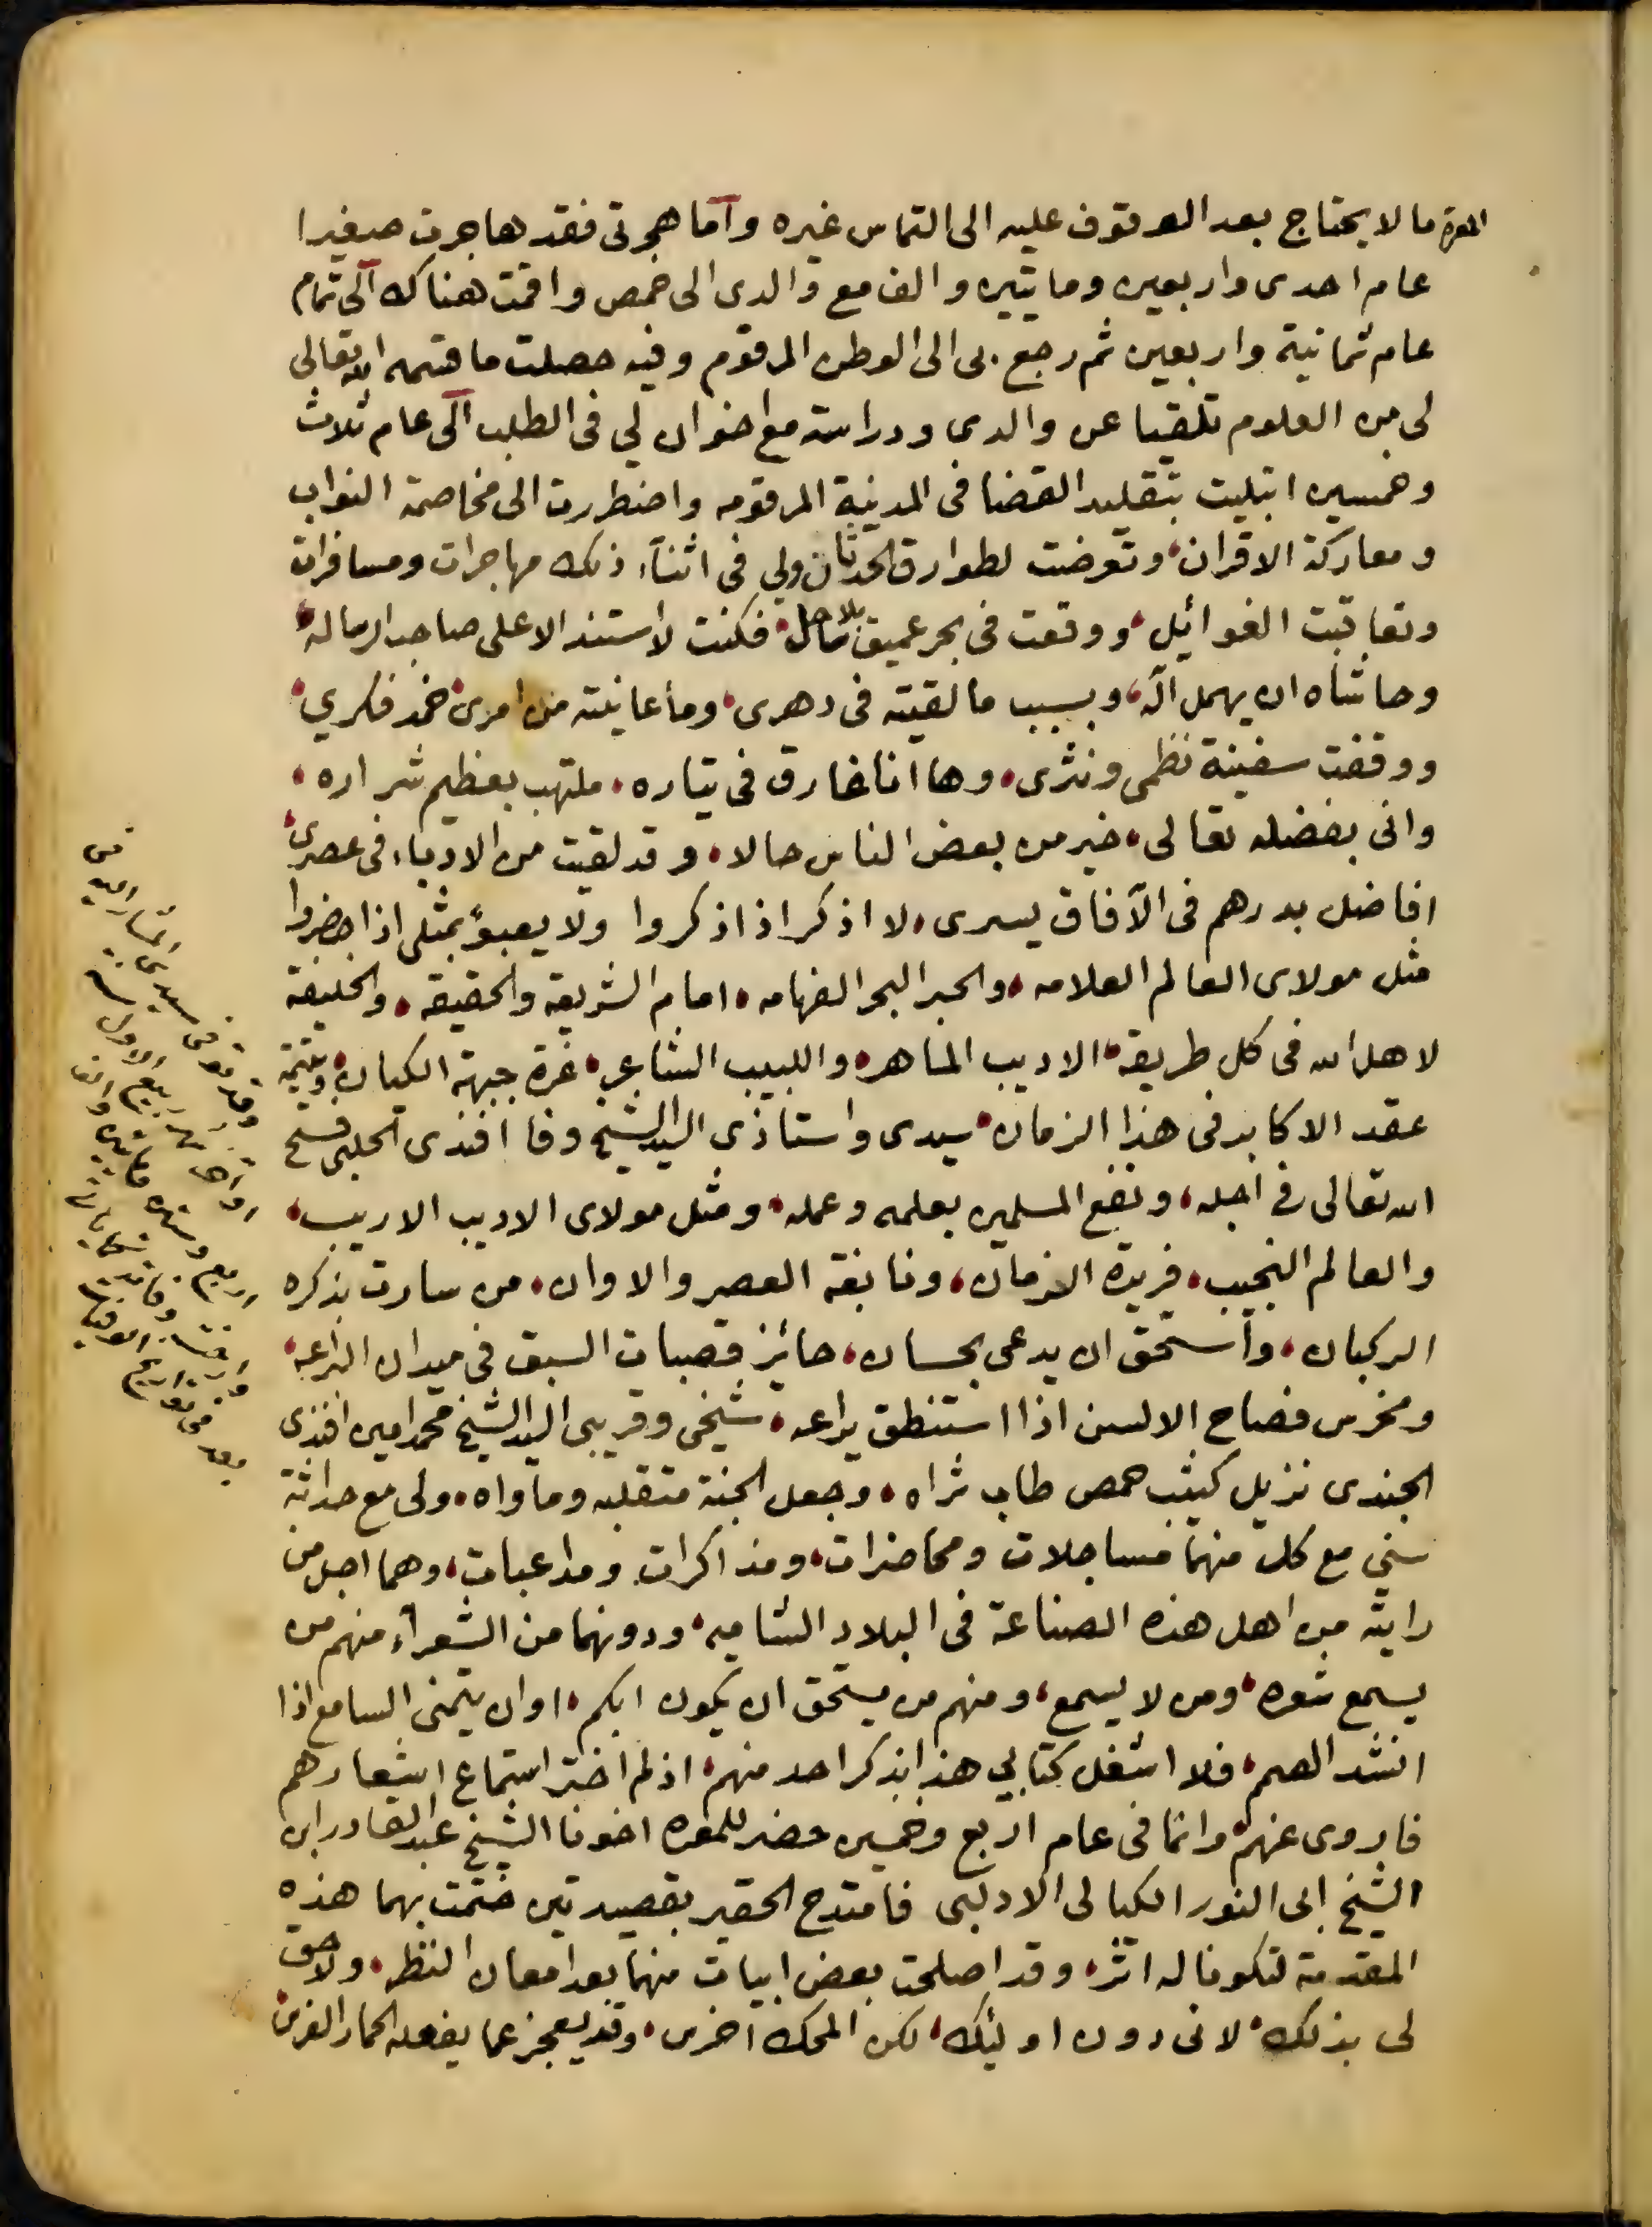 المعرة ما لا يحتاج بعد الوقوف عليه الى التماس غيره وأما هجرتى فقد هاجرت صغيرا
عام احدى واربعين ومايتين والف مع والدى الى حمص واقمت هناك الى تمام
عام ثمانية واربعين ثم رجع بى الى الوطن المرقوم وفيه حصلت ما قسمه الله تعالى
لى من العلوم تلقيا عن والدى ودراسة مع اخوان لي فى الطلب الى عام ثلاث
وخمسين ابتليت بتقليد القضا فى المدينة المرقومه واضطررت الى مخاصمة النواب
ومعاركة الاقران، وتعرضت لطوارق الحدثان ولي فى اثناء ذلك مهاجرات ومسافرات
وتعاقبت الغوائيل، ووقعت فى بحر عميق بلا ساحل، فكنت لا استند الا على صاحب الرساله،
وحاشاه ان يهمل آله، وبسبب ما لقيته فى دهرى، وما عانيته من امرى، خمد فكري،
ووقفت سفينة نظمى ونثرى، وها انا غارق فى تياره، ملتهب بعظيم شراره،
وانى بفضله تعالى، خير من بعض الناس حالا، وقد لقيت من الادباء فى عصرى،
افاضل بدرهم فى الآفاق يسرى، لا اذكر اذا ذكروا ولا يعبؤ بمثلى اذا حضروا
مثل مولاى العالم العلامه، والحبر البحر الفهامه، امام الشريعة والحقيقه، والخليفة
لاهل الله فى كل طريقه، الاديب الماهر، واللبيب الشاعر، غرة جبهة الكيان، ويتيمة
عقد الاكابر فى هذا الزمان، سيدى واستاذى السيد الشيخ وفا افندى الحلبى فسح
الله تعالى فى اجله، ونفع المسلمين بعلمه وعمله، ومثل مولاى الاديب الاريب،
والعالم النجيب، فريدة الازمان، ونابغة العصر والاوان، من سارت بذكره
الركبان، واستحق ان يدعى بحسان، حائز قصبات السبق فى ميدان البراعه،
ومخرس فصاح الالسن اذا استنطق يراعه، شيخى وقريبى السيد الشيخ محمد امين افندى
الجندى نزيل كثيب حمص طاب ثراه، وجعل الجنة متقلبه ومأواه، ولى مع حداثة
سني مع كل منهما مساجلات ومحاضرات، ومذاكرات ومداعبات، وهما اجل من
رايته من اهل هذه الصناعة فى البلاد الشاميه، ودونهما من الشعراء منهم من
يسمع شعره، ومن لا يسمع، ومنهم من يستحق ان يكون ابكم، او ان يتمنى السامع اذا
انشد الصمم، فلا اشغل كتابي هذا بذكر احد منهم، اذ لم اختر استماع اشعارهم
فاروى عنهم، وانما فى عام اربع وخمسين حضر للمعره اخونا الشيخ عبد القادر ابن
الشيخ ابى النور الكيالى الادلبى فامتدح الحقير بقصيدتين ختمت بهما هذه
المقدمة لتكونا له اثر، وقد اصلحت بعض ابيات منهما بعد امعان النظر، ولا حق
لى بذلك، لانى دون اولئك، لكن المحك اخرس، وقد يعجز عما يفعله الحمار الفرس
وقد توفى سيدى المشار اليه فى
اواخر ربيع الاول سنة
اربع وستين ومايتين والف